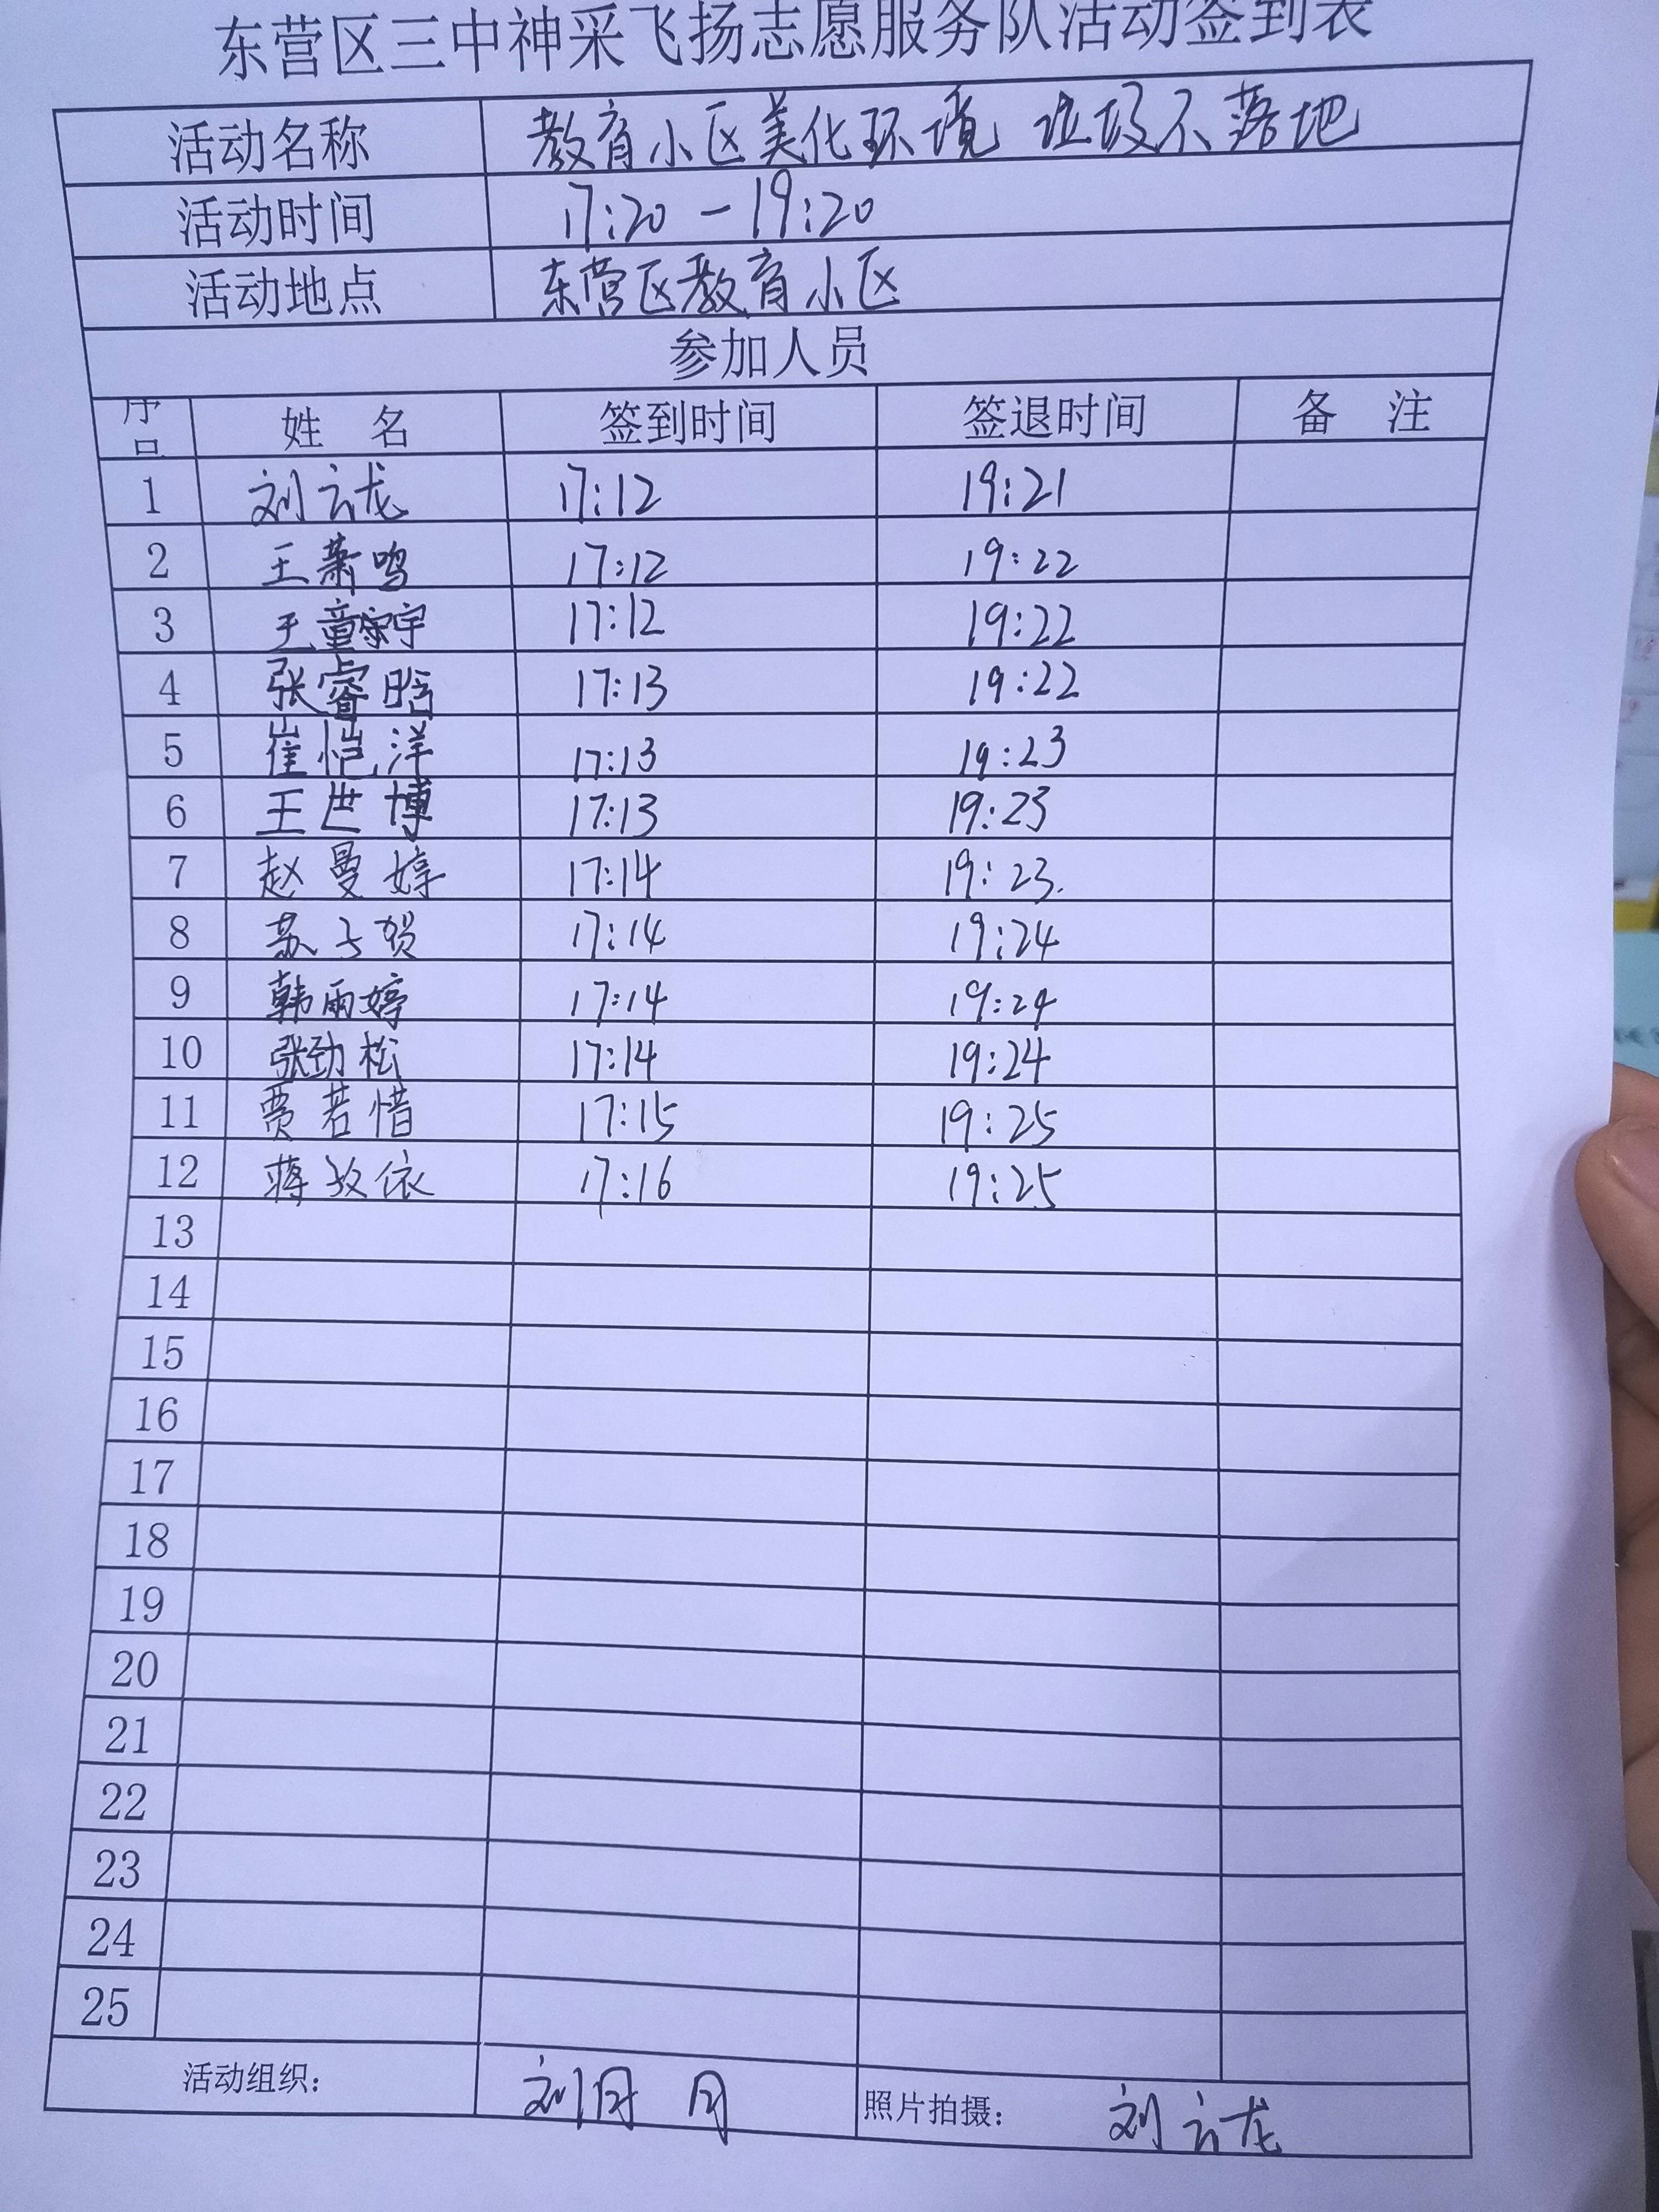 东营区三中神采飞扬志愿服务队活动签到表
活动名称 教育小区美化环境 垃圾不落地
活动时间 17:20-19:20
活动地点 东营区教育小区
参加人员
序号 姓 名 签到时间 签退时间 备 注
1 刘云龙 17:12 19:21
2 王萧鸣 17:12 19:22
3 王童宇 17:12 19:22
4 张睿晗 17:13 19:22
5 崔恺洋 17:13 19:23
6 王世博 17:13 19:23
7 赵曼婷 17:14 19:23.
8 苏子贺 17:14 19:24
9 韩雨婷 17:14 19:24
10 张劲松 17:14 19:24
11 贾若惜 17:15 19:25
12 蒋依 17:16 19:25
13
14
15
16
17
18
19
20
21
22
23
24
25
活动组织： 刘月月 照片拍摄： 刘云龙